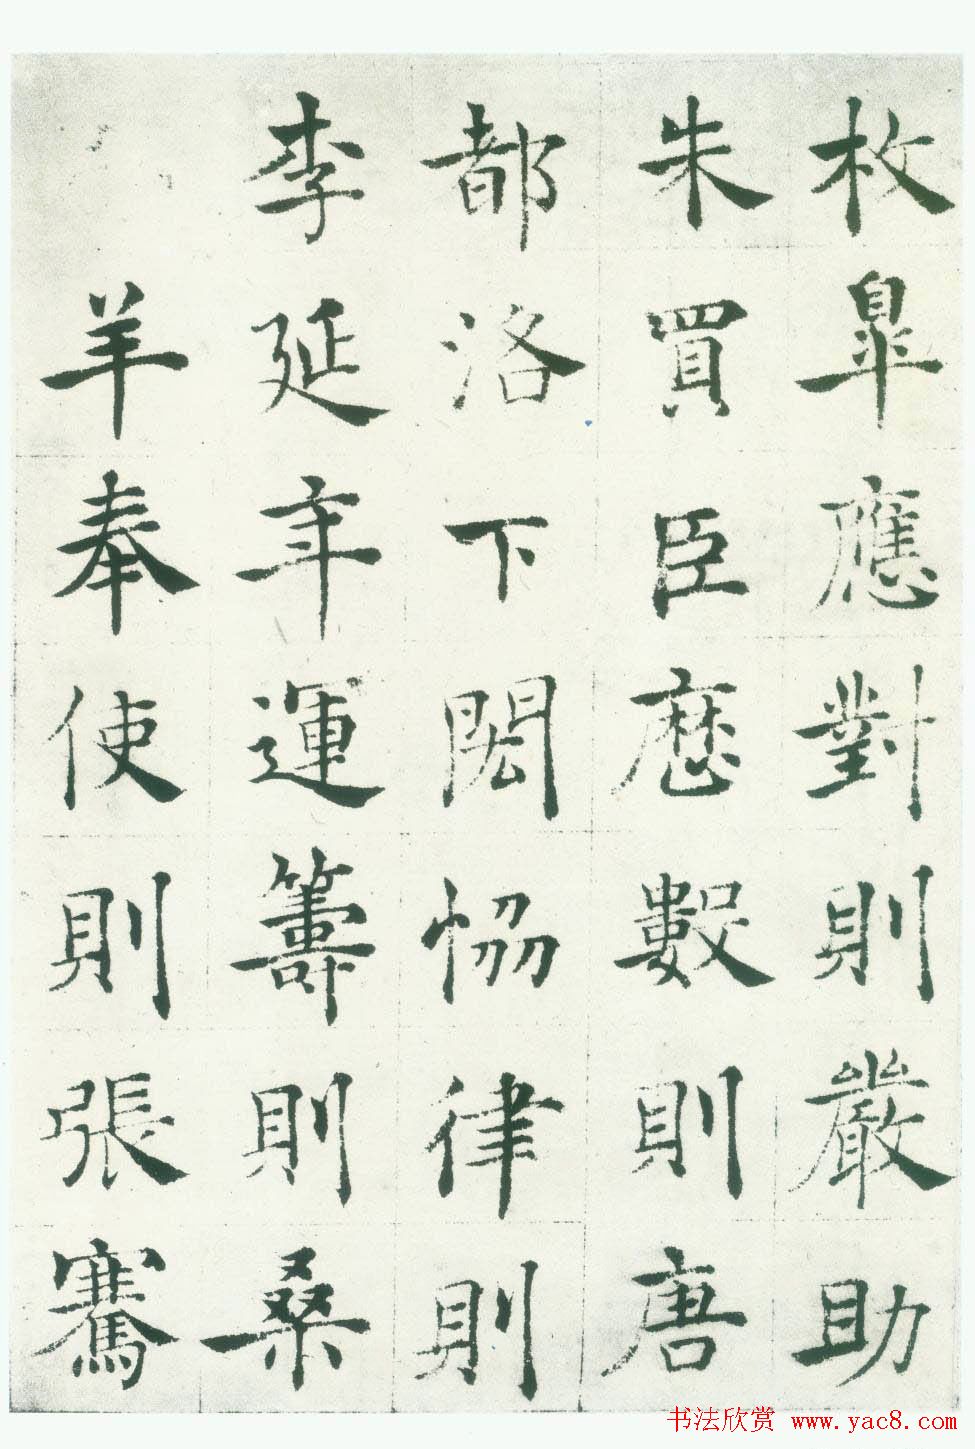 枚皐應對則嚴助
朱買臣歷數則唐
都洛下閎恊律則
李延年運籌則桑
羊奉使則張騫
书法欣赏 www.yac8.com